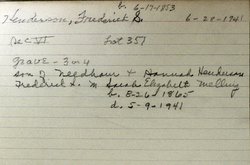 b. 6-17-1853
Henderson, Frederick G. 6-28-1941
Sec VI Lot 357
Grave - 3 or 4
son of Needham & Hannah Henderson
Frederick G. M Sarah Elizabeth McElroy
b. 8-26-1865
d. 5-9-1941